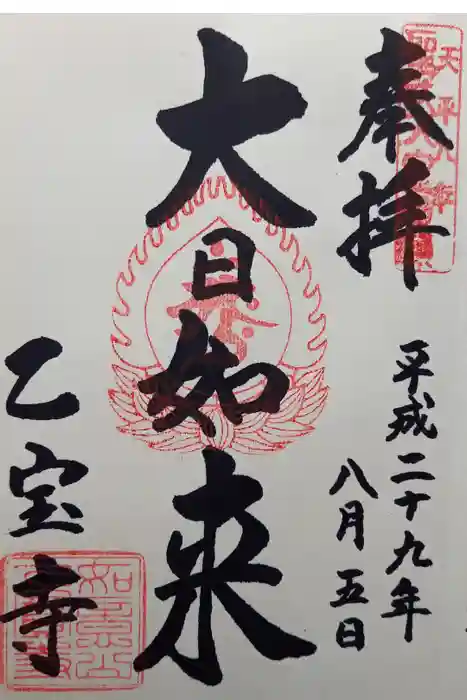 奉拝
平成二十九年
八月五日
大日如来
乙宝寺